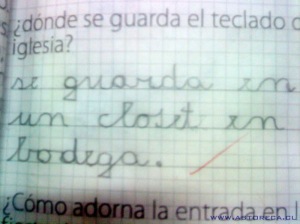 ¿dónde se guarda el teclado
iglesia?
se guarda en
un closet en
bodega.
¿Cómo adorna la entrada en
www.autorega.cl